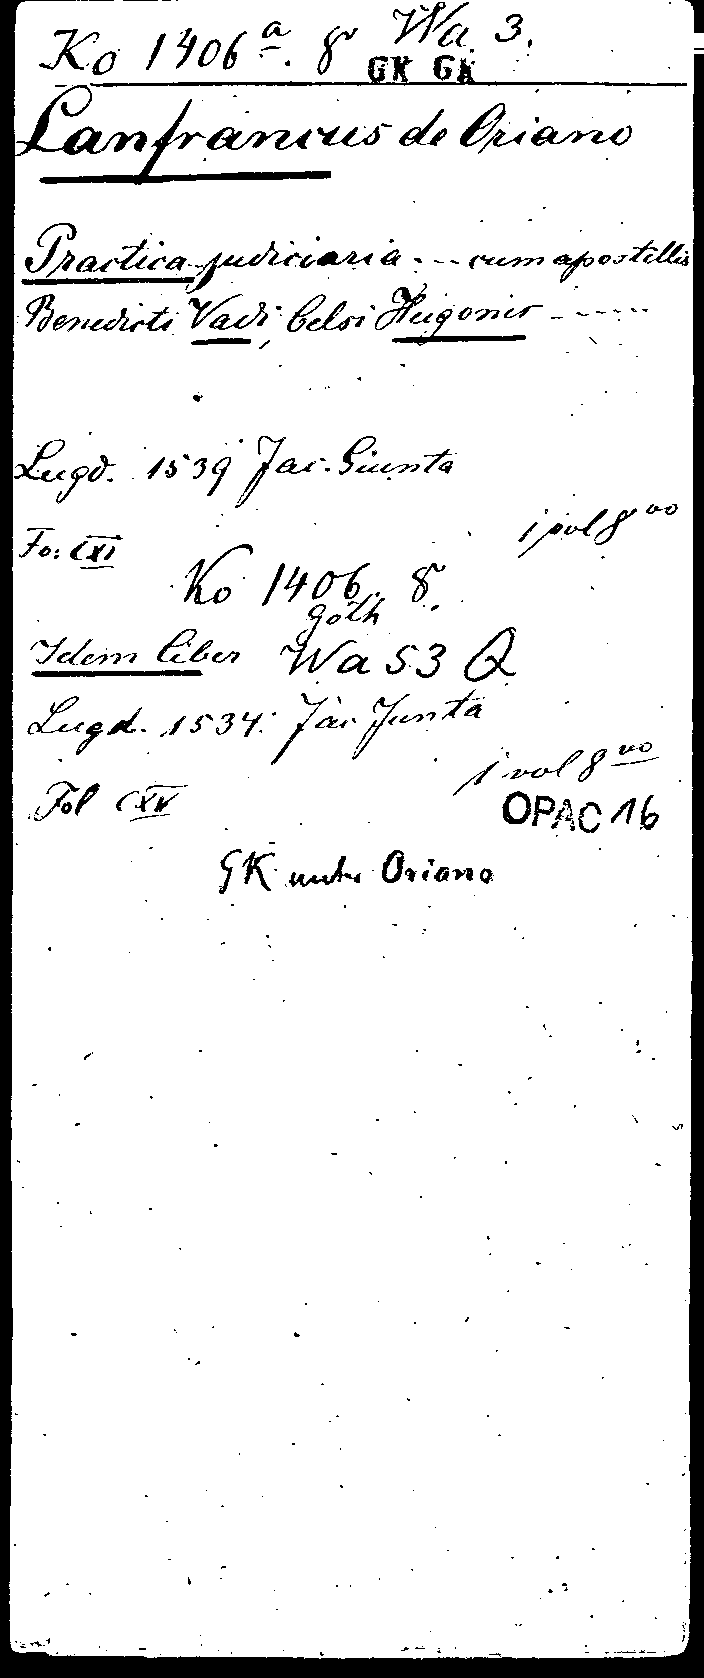 Ko 1406 a. 8° Wa. 3.
GK GK
Lanfrancus de Oriano
Practica judiciaria --- cum apostillis
Benedicti Vadi, Celsi Hugonis -----
Lugd. 1539 Jac. Giunta
1 vol 8 vo
Fo: CXI
Ko 1406. 8°.
Goth
Idem liber Wa 53 Q
Lugd. 1534. Jac. Junta
1 vol 8 vo
Fol CXV
OPAC 16
GK unter Oriano